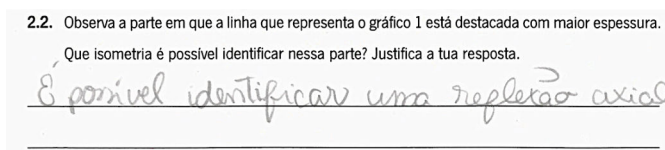 2.2. Observa a parte em que a linha que representa o gráfico 1 está destacada com maior espessura.
Que isometria é possível identificar nessa parte? Justifica a tua resposta.
É possível identificar uma reflexão axial